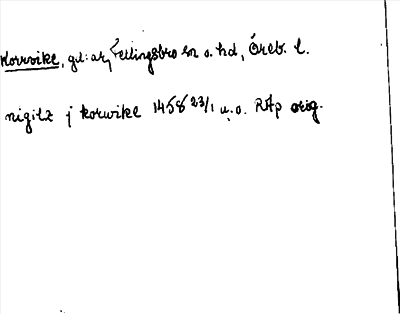 Korrvike, gd: ar, Fellingsbro sn o. hd, Öreb. l.
nigilz j korwike 1458 23/1 u.o. RAp orig.